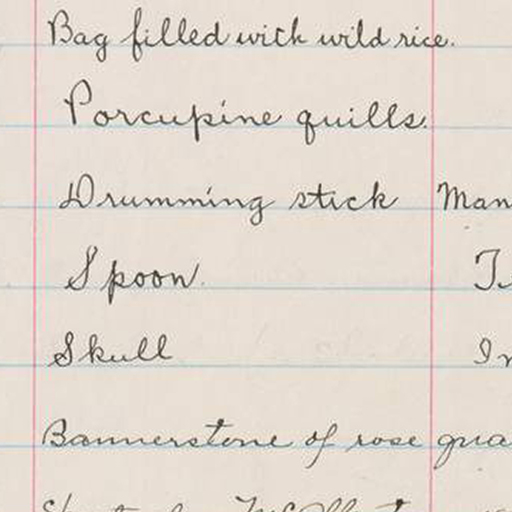 Bag filled with wild rice.
Porcupine quills.
Drumming stick Man
Spoon.
Skull
Bannerstone of rose qua